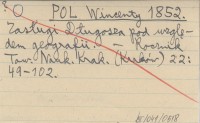 O POL Wincenty 1852.
Zasługi Długosza pod wzglę-
dem geografii. — Rocznik
Tow. Nauk. Krak. (Kraków) 22:
49-102.